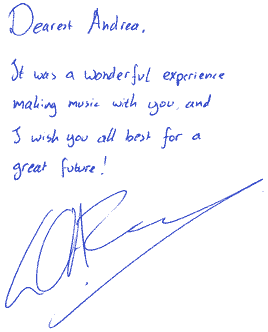 Dearest Andrea,
It was a wonderful experience
making music with you, and
I wish you all best for a
great future!